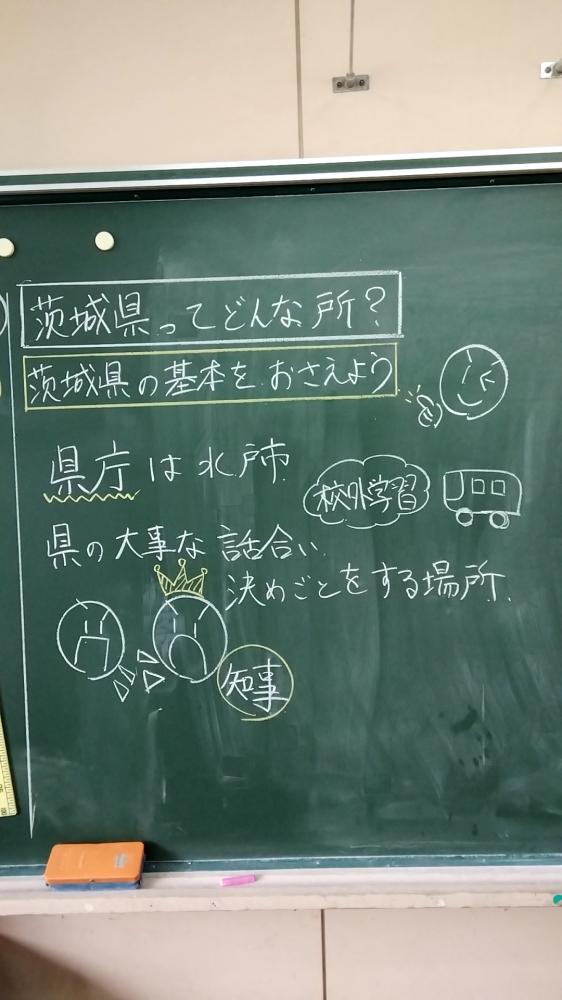 茨城県ってどんな所?
茨城県の基本をおさえよう
県庁は水戸市
校外学習
県の大事な話合い、
決めごとをする場所、
知事